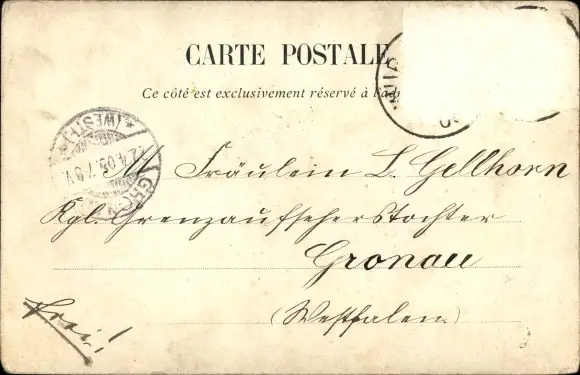 CARTE POSTALE
Ce côté est exclusivement réservé à l'adr
GRO
(WESTF.)
2.4.05.7-8V
Fräulein L. Gellhorn
Kgl. Grenzaufseherstochter
Gronau
(Westfalen)
Frei!